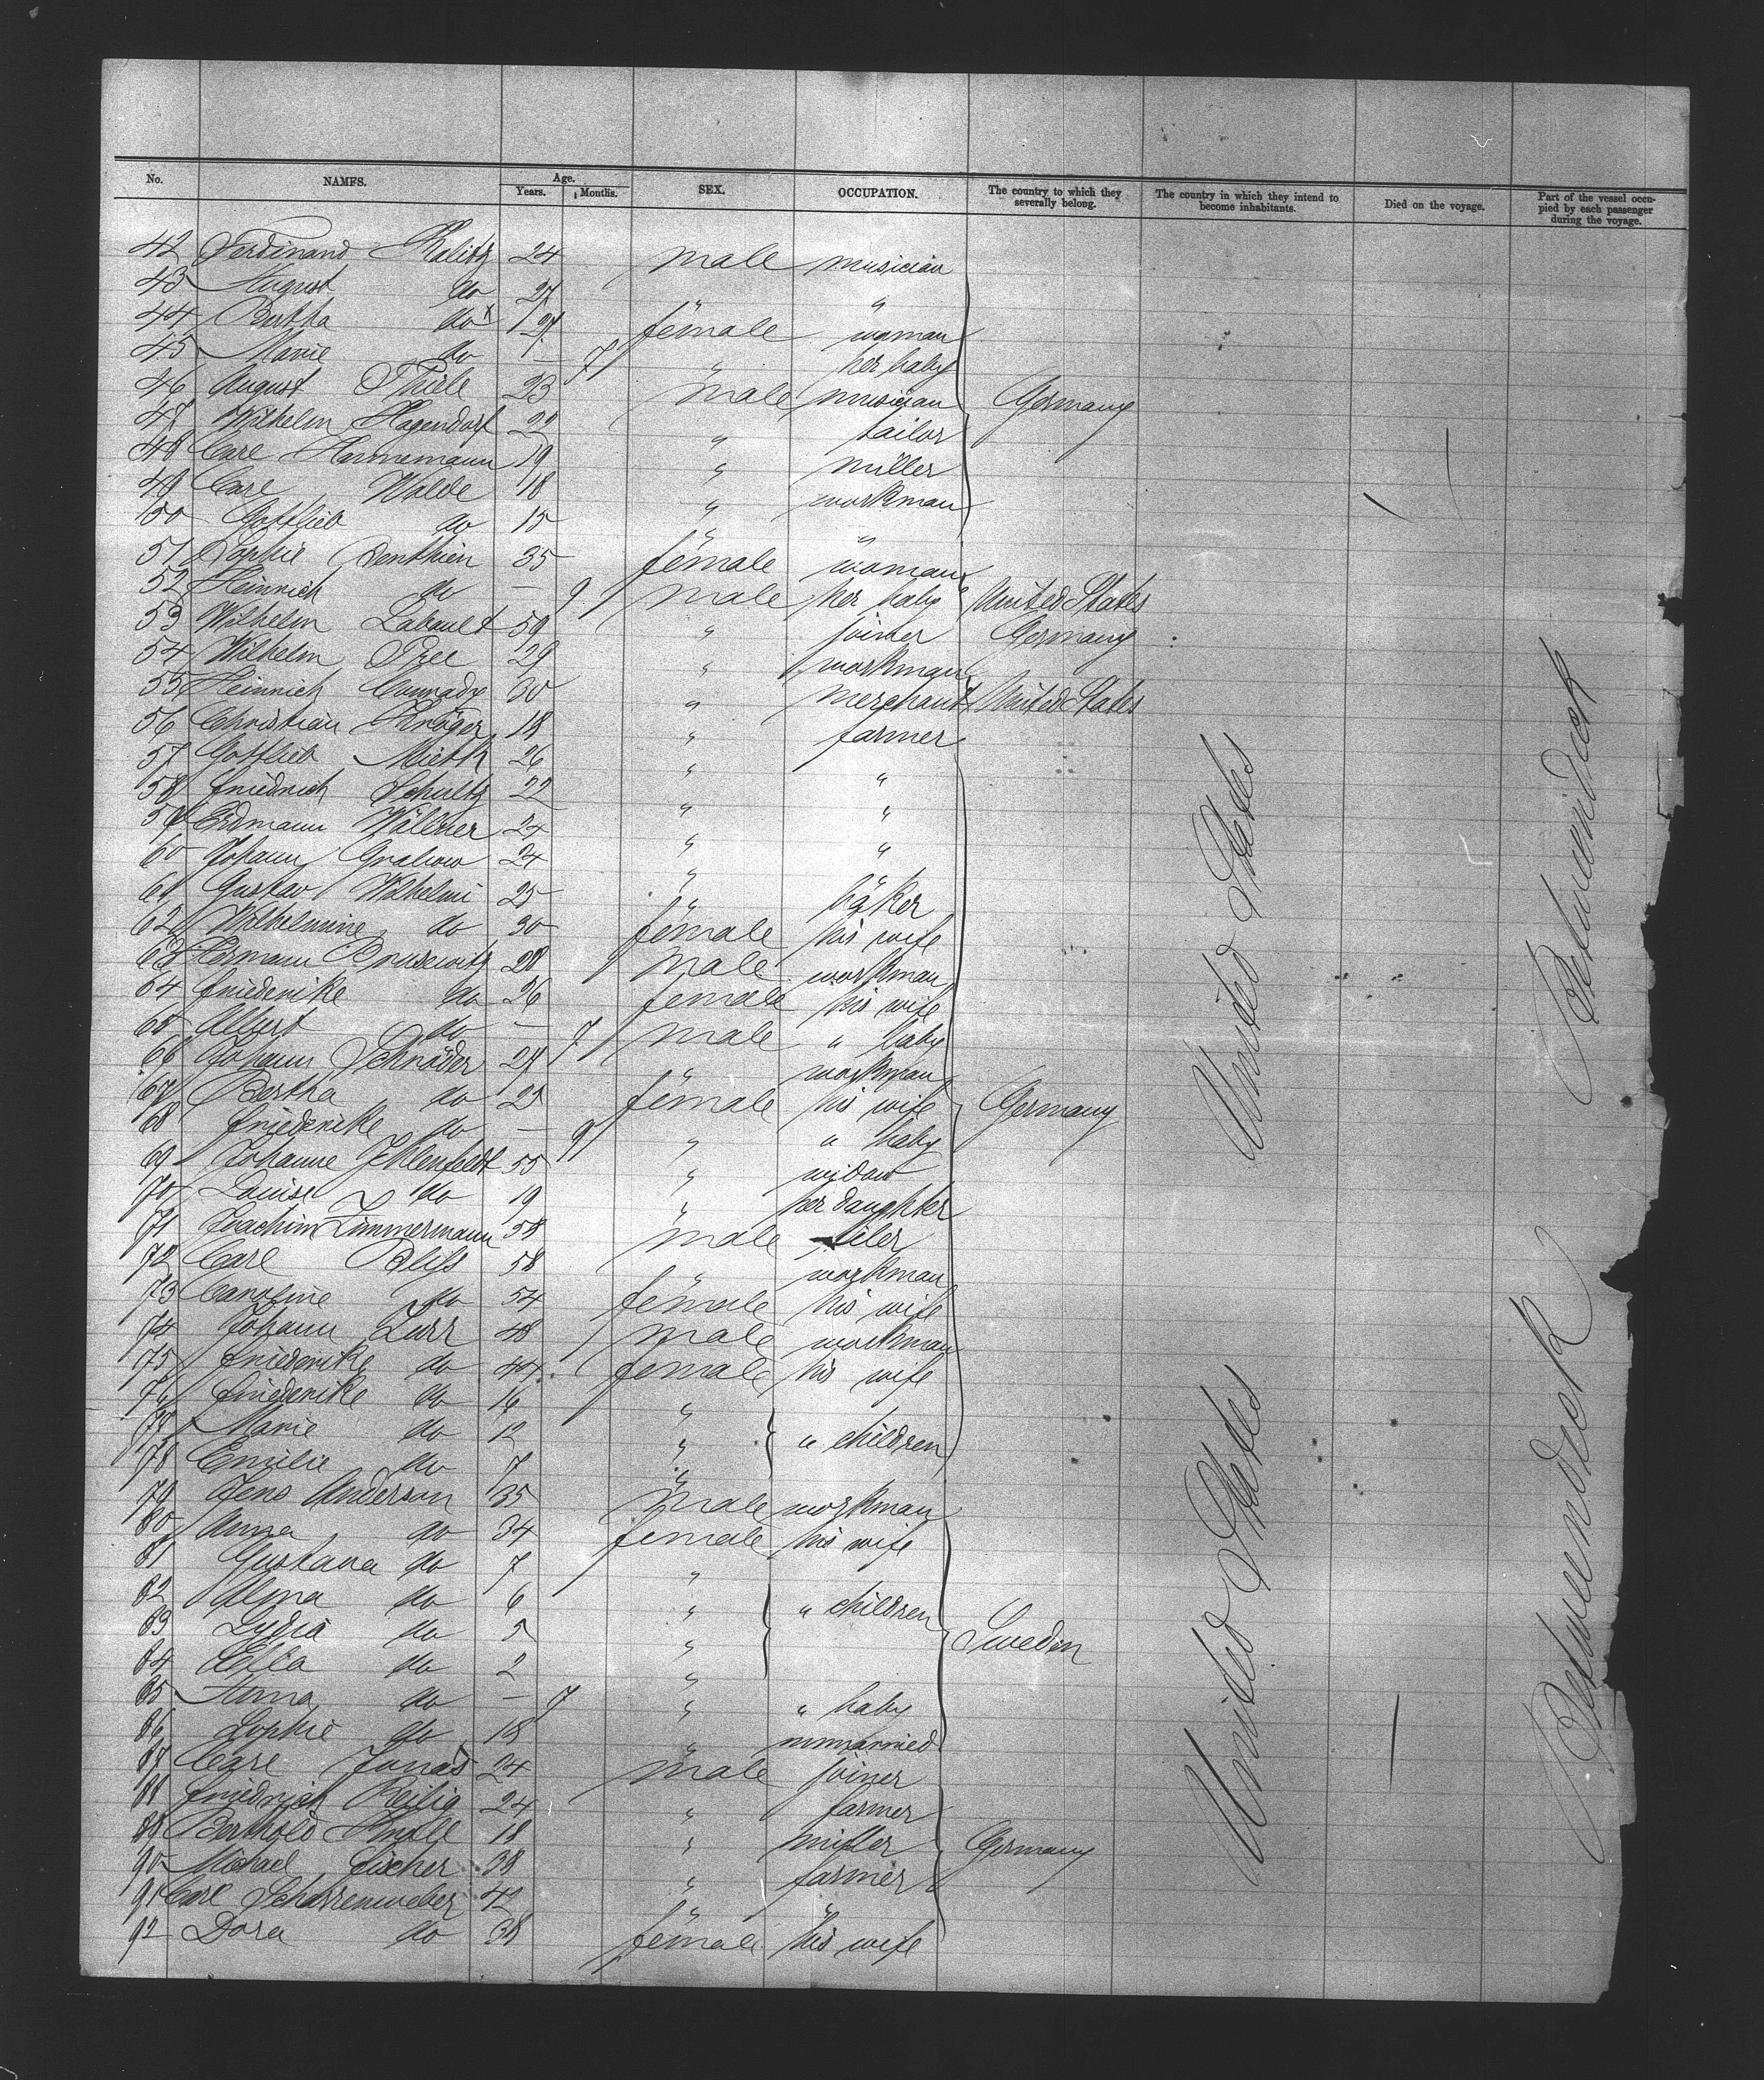 No. NAMES. Age. Years. Months. SEX. OCCUPATION. The country to which they severally belong. The country in which they intend to become inhabitants. Died on the voyage. Part of the vessel occupied by each passenger during the voyage.
42 Ferdinand Kalitz 24 male musician
43 August do 27 "
44 Bertha do 27 female woman
45 Marie do — 7 " her baby
46 August Thiele 23 male musician Germany
47 Wilhelm Hagendorf 22 " tailor
48 Carl Hannemann 19 " miller
49 Carl Walde 18 " workman
50 Gottlieb do 15 " "
51 Sophie Benthien 35 female woman
52 Heinrich do — 9 male her baby United States
53 Wilhelm Labault 59 " joiner Germany
54 Wilhelm 29 " workman
55 Heinrich Conrady 30 " merchant United States
56 Christian Krüger 18 " farmer
57 Gottlieb Mietk 26 " "
58 Friedrich Schultz 22 " "
59 Erdmann Wällner 24 " "
60 Johann Grabow 24 "
61 Gustav Wilhelmi 25 " bäker
62 Wilhelmine do 30 female his wife
63 Hermann Brusewitz 28 male workman
64 Friederike do 26 female his wife
65 Albert do — 7 male " baby
66 Johann Schröder 27 " workman
67 Bertha do 25 female his wife Germany
68 Friederike do — 9 " " baby
69 Johanne Ihlenfeldt 55 " widow
70 Louise do 19 " her daughter
71 Joachim Zimmermann 58 male tiler
72 Carl Bliss 58 " workman
73 Caroline do 54 female his wife
74 Johann Lurr 48 male workman
75 Friederike do 44 female his wife
76 Friederike do 16 "
77 Marie do 12 " " children
78 Emilie do 7 "
79 Jens Anderson 35 male workman
80 Anna do 34 female his wife
81 Gustava do 7 "
82 Alma do 6 " " children
83 Lydia do 5 " Sweden
84 do 2 "
85 do — 7 " " baby
86 Sophie do 18 " unmarried
87 Carl Jonas 24 male joiner
88 Friedrich Reilig 24 " farmer
89 Berthold Knoll 18 " miller Germany
90 Michael Fischer 38 " farmer
91 Carl Scharrenweber 42 " "
92 Dora do 38 female his wife
United States
United States
Betweendeck
Betweendeck